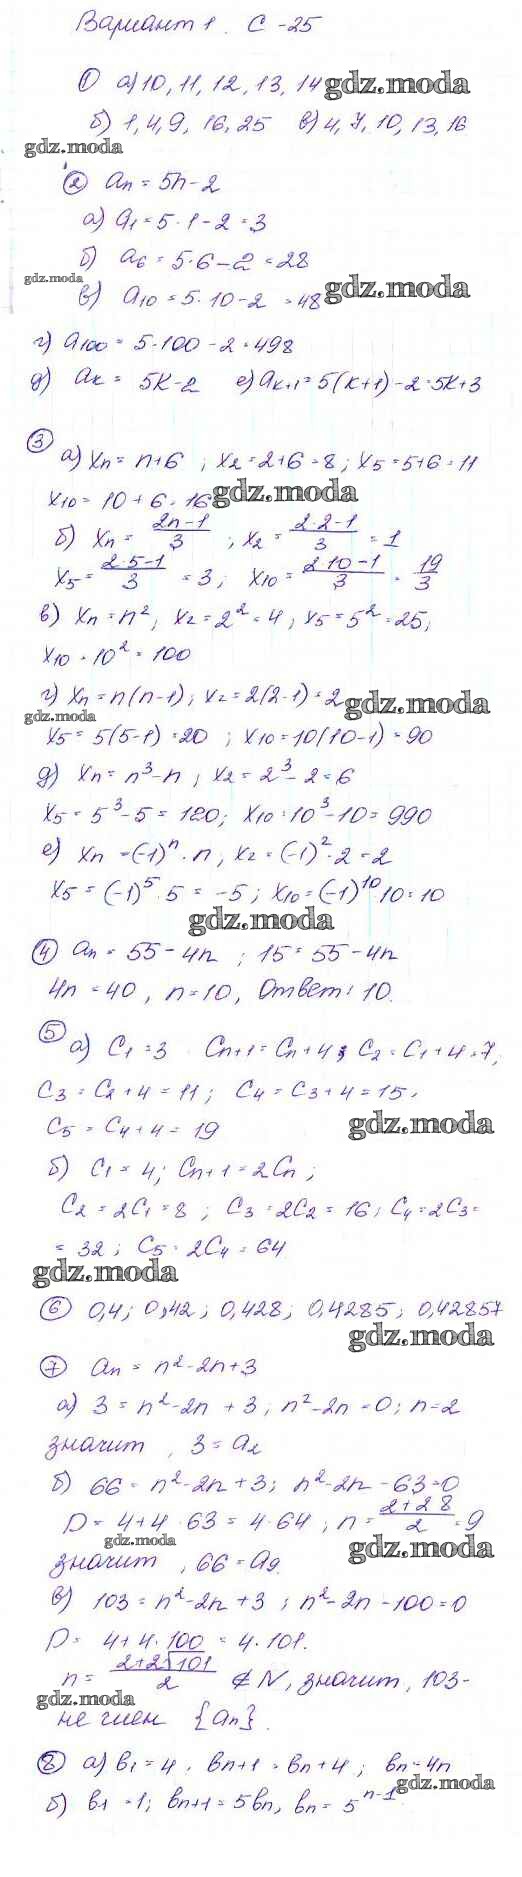 Вариант 1. С-25
① а) 10, 11, 12, 13, 14 gdz.moda
б) 1, 4, 9, 16, 25 в) 4, 7, 10, 13, 16
gdz.moda
② an = 5n - 2
а) a1 = 5·1 - 2 = 3
б) a6 = 5·6 - 2 = 28
gdz.moda
в) a10 = 5·10 - 2 = 48 gdz.moda
г) a100 = 5·100 - 2 = 498
д) ak = 5k - 2 е) ak+1 = 5(k+1) - 2 = 5k+3
③ а) xn = n+6 ; x2 = 2+6 = 8 ; x5 = 5+6 = 11
x10 = 10 + 6 = 16 gdz.moda
б) xn = (2n-1)/3 , x2 = (2·2-1)/3 = 1
x5 = (2·5-1)/3 = 3 ; x10 = (2·10-1)/3 = 19/3
в) xn = n², x2 = 2² = 4 ; x5 = 5² = 25,
x10 = 10² = 100
г) xn = n(n-1) ; x2 = 2(2-1) = 2 gdz.moda
gdz.moda
x5 = 5(5-1) = 20 ; x10 = 10(10-1) = 90
д) xn = n³-n ; x2 = 2³-2 = 6
x5 = 5³-5 = 120; x10 = 10³-10 = 990
е) xn = (-1)ⁿ·n, x2 = (-1)²·2 = 2
x5 = (-1)⁵·5 = -5 ; x10 = (-1)¹⁰·10 = 10
gdz.moda
④ an = 55 - 4n ; 15 = 55 - 4n
4n = 40, n = 10, Ответ: 10.
⑤ а) C1 = 3 Cn+1 = Cn+4 ; C2 = C1+4 = 7,
C3 = C2+4 = 11 ; C4 = C3+4 = 15,
C5 = C4+4 = 19 gdz.moda
б) C1 = 4; Cn+1 = 2Cn ;
C2 = 2C1 = 8 ; C3 = 2C2 = 16 ; C4 = 2C3 =
= 32 ; C5 = 2C4 = 64
gdz.moda
⑥ 0,4; 0,42; 0,428; 0,4285; 0,42857
gdz.moda
⑦ an = n²-2n+3
а) 3 = n²-2n+3 ; n²-2n = 0 ; n = 2
значит, 3 = a2
б) 66 = n²-2n+3; n²-2n-63 = 0
D = 4+4·63 = 4·64 ; n = (2+28)/2 = 9
gdz.moda
значит, 66 = a9. gdz.moda
в) 103 = n²-2n+3 ; n²-2n-100 = 0
D = 4+4·100 = 4·101.
n = (2+2√101)/2 ∉ N, значит, 103-
gdz.moda
не член {an}.
⑧ а) b1 = 4, bn+1 = bn+4 ; bn = 4n
gdz.moda
б) b1 = 1; bn+1 = 5bn, bn = 5ⁿ⁻¹